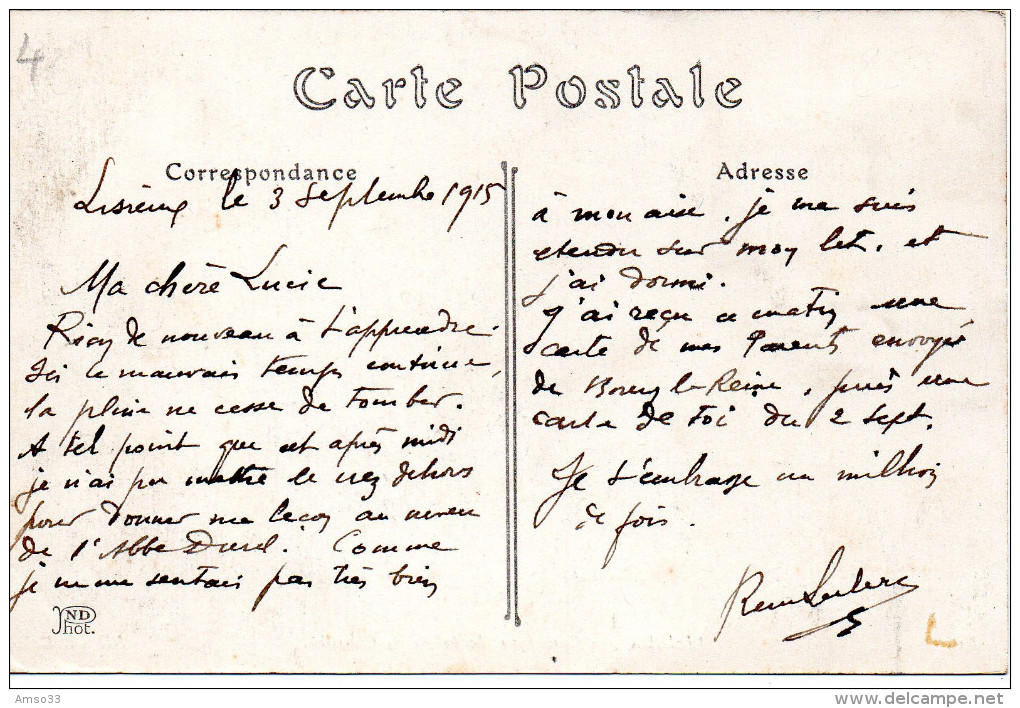 4
Carte Postale
Correspondance
Lisieux le 3 Septembre 1915
Ma chère Lucie
Rien de nouveau à t'apprendre.
Ici le mauvais temps continue,
la pluie ne cesse de tomber.
A tel point que cet après midi
je n'ai pu mettre le nez dehors
pour donner ma leçon au neveu
de l'Abbé Durel. Comme
je ne me sentais pas très bien
ND
Phot.
Adresse
à mon aise, je me suis
etendu sur mon lit, et
j'ai dormi.
J'ai reçu ce matin une
carte de mes Parents envoyée
de Bourg la Reine, puis une
carte de toi du 2 sept.
Je t'embrasse un million
de fois.
Leclerc
Amso33
www.delcampe.net